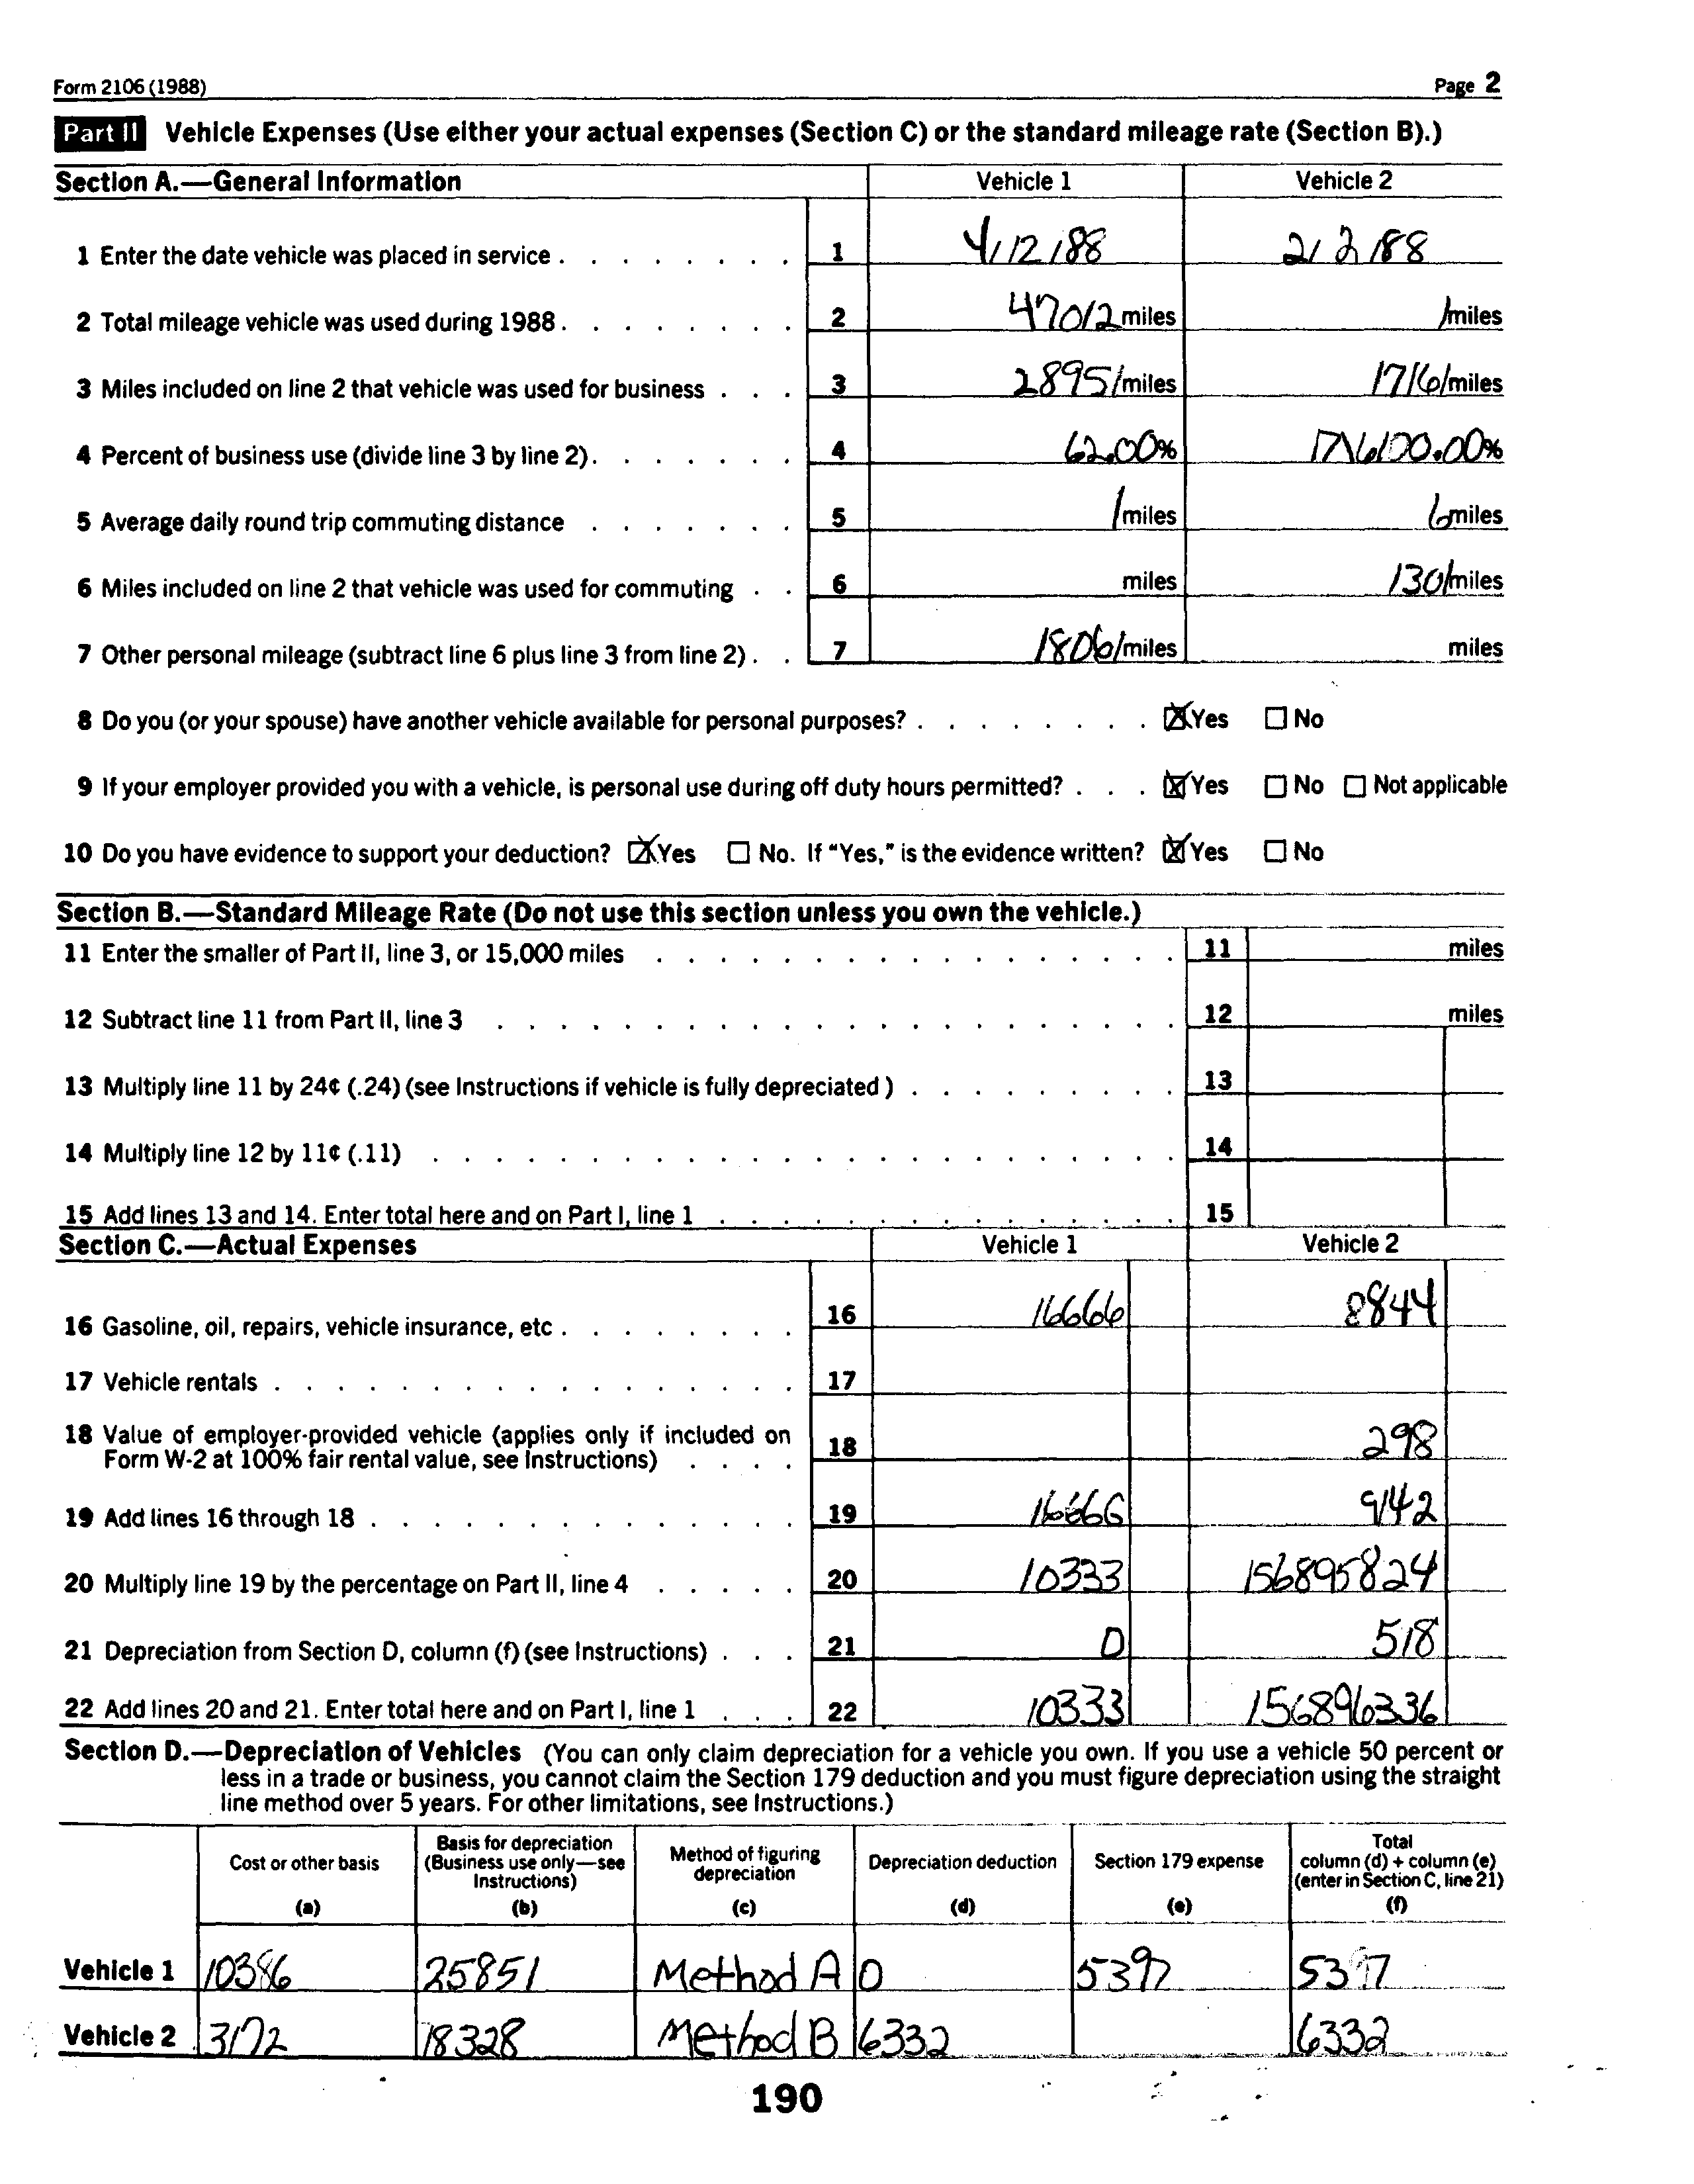 Form 2106 (1988) Page 2
Part II Vehicle Expenses (Use either your actual expenses (Section C) or the standard mileage rate (Section B).)
Section A.—General Information Vehicle 1 Vehicle 2
1 Enter the date vehicle was placed in service . . . . . . . . 1 4/12/88 2/2/88
2 Total mileage vehicle was used during 1988 . . . . . . . . 2 47012 miles 1 miles
3 Miles included on line 2 that vehicle was used for business . . . 3 28951 miles 17161 miles
4 Percent of business use (divide line 3 by line 2) . . . . . . . 4 62.00% 1716100.00%
5 Average daily round trip commuting distance . . . . . . . 5 1 miles 6 miles
6 Miles included on line 2 that vehicle was used for commuting . . 6 miles 1301 miles
7 Other personal mileage (subtract line 6 plus line 3 from line 2) . . 7 18061 miles miles
8 Do you (or your spouse) have another vehicle available for personal purposes? . . . . . . . . ☒ Yes ☐ No
9 If your employer provided you with a vehicle, is personal use during off duty hours permitted? . . . ☒ Yes ☐ No ☐ Not applicable
10 Do you have evidence to support your deduction? ☒ Yes ☐ No. If "Yes," is the evidence written? ☒ Yes ☐ No
Section B.—Standard Mileage Rate (Do not use this section unless you own the vehicle.)
11 Enter the smaller of Part II, line 3, or 15,000 miles . . . . . . . . . . . . . . . . . 11 miles
12 Subtract line 11 from Part II, line 3 . . . . . . . . . . . . . . . . . . . . . . 12 miles
13 Multiply line 11 by 24¢ (.24) (see Instructions if vehicle is fully depreciated ) . . . . . . . . . 13
14 Multiply line 12 by 11¢ (.11) . . . . . . . . . . . . . . . . . . . . . . . . 14
15 Add lines 13 and 14. Enter total here and on Part I, line 1 . . . . . . . . . . . . . . . 15
Section C.—Actual Expenses Vehicle 1 Vehicle 2
16 Gasoline, oil, repairs, vehicle insurance, etc . . . . . . . . 16 16666 8844
17 Vehicle rentals . . . . . . . . . . . . . . . . . 17
18 Value of employer-provided vehicle (applies only if included on
Form W-2 at 100% fair rental value, see Instructions) . . . . 18 298
19 Add lines 16 through 18 . . . . . . . . . . . . . . 19 16666 9142
20 Multiply line 19 by the percentage on Part II, line 4 . . . . . 20 10333 156895824
21 Depreciation from Section D, column (f) (see Instructions) . . . 21 0 518
22 Add lines 20 and 21. Enter total here and on Part I, line 1 . . . 22 10333 156896336
Section D.—Depreciation of Vehicles (You can only claim depreciation for a vehicle you own. If you use a vehicle 50 percent or
less in a trade or business, you cannot claim the Section 179 deduction and you must figure depreciation using the straight
line method over 5 years. For other limitations, see Instructions.)
Cost or other basis (a) Basis for depreciation (Business use only—see Instructions) (b) Method of figuring depreciation (c) Depreciation deduction (d) Section 179 expense (e) Total column (d) + column (e) (enter in Section C, line 21) (f)
Vehicle 1 10386 25851 Method A 0 5397 5397
Vehicle 2 3172 18328 Method B 6332 6332
190